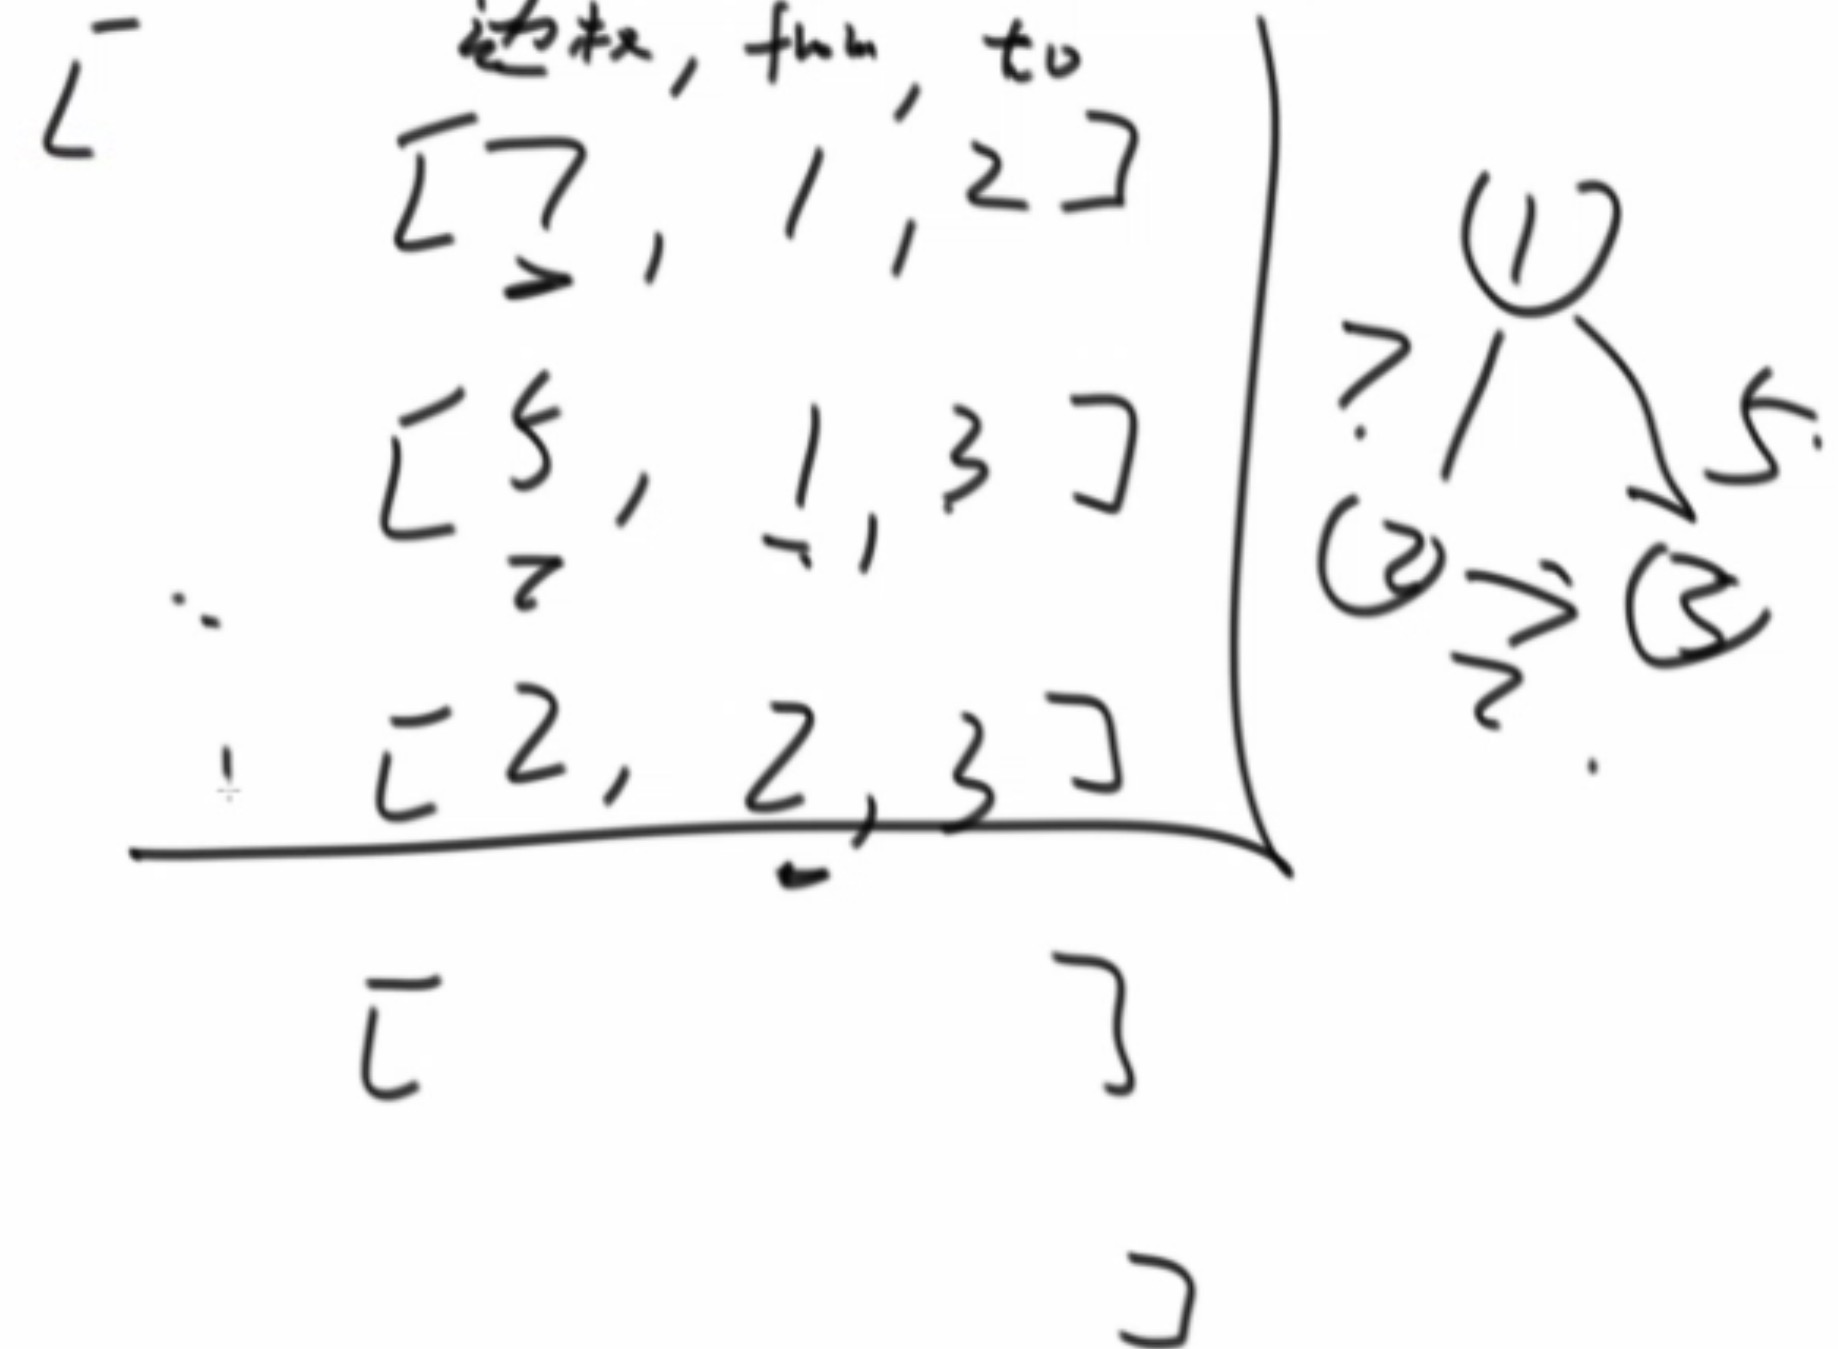 [
边权, from, to
[7, 1, 2]
[5, 1, 3]
[2, 2, 3]
[ ]
]
1
7 5
2 3
2